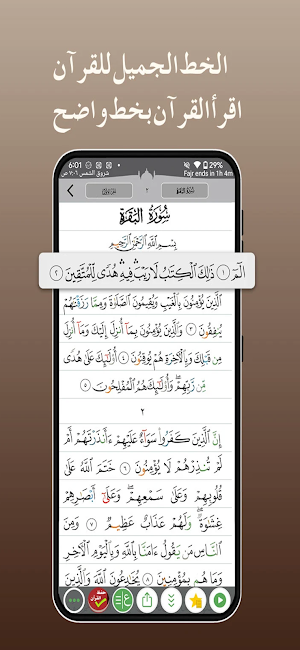 الخط الجميل للقرآن
اقرأ القرآن بخط واضح
6:01 29%
شروق الشمس ٧:٠٦ ص Fajr ends in 1h 4m
٢ سُورَةُ البَقَرَة
سُورَةُ البَقَرَةِ
بِسْمِ اللَّهِ الرَّحْمَٰنِ الرَّحِيمِ
الٓمٓ ١ ذَٰلِكَ الْكِتَٰبُ لَا رَيْبَ ۛ فِيهِ ۛ هُدًى لِّلْمُتَّقِينَ ٢
الَّذِينَ يُؤْمِنُونَ بِالْغَيْبِ وَيُقِيمُونَ الصَّلَاةَ وَمِمَّا رَزَقْنَٰهُمْ
يُنفِقُونَ ٣ وَالَّذِينَ يُؤْمِنُونَ بِمَآ أُنزِلَ إِلَيْكَ وَمَآ أُنزِلَ
مِن قَبْلِكَ وَبِالْآخِرَةِ هُمْ يُوقِنُونَ ٤ أُولَٰٓئِكَ عَلَىٰ هُدًى
مِّن رَّبِّهِمْ ۖ وَأُولَٰٓئِكَ هُمُ الْمُفْلِحُونَ ٥
٢
إِنَّ الَّذِينَ كَفَرُوا سَوَآءٌ عَلَيْهِمْ ءَأَنذَرْتَهُمْ أَمْ
لَمْ تُنذِرْهُمْ لَا يُؤْمِنُونَ ٦ خَتَمَ اللَّهُ عَلَىٰ
قُلُوبِهِمْ وَعَلَىٰ سَمْعِهِمْ ۖ وَعَلَىٰٓ أَبْصَٰرِهِمْ
غِشَٰوَةٌ ۖ وَلَهُمْ عَذَابٌ عَظِيمٌ ٧ وَمِنَ
النَّاسِ مَن يَقُولُ ءَامَنَّا بِاللَّهِ وَبِالْيَوْمِ الْآخِرِ
وَمَا هُم بِمُؤْمِنِينَ ٨ يُخَٰدِعُونَ اللَّهَ وَالَّذِينَ
حفظ القرآن